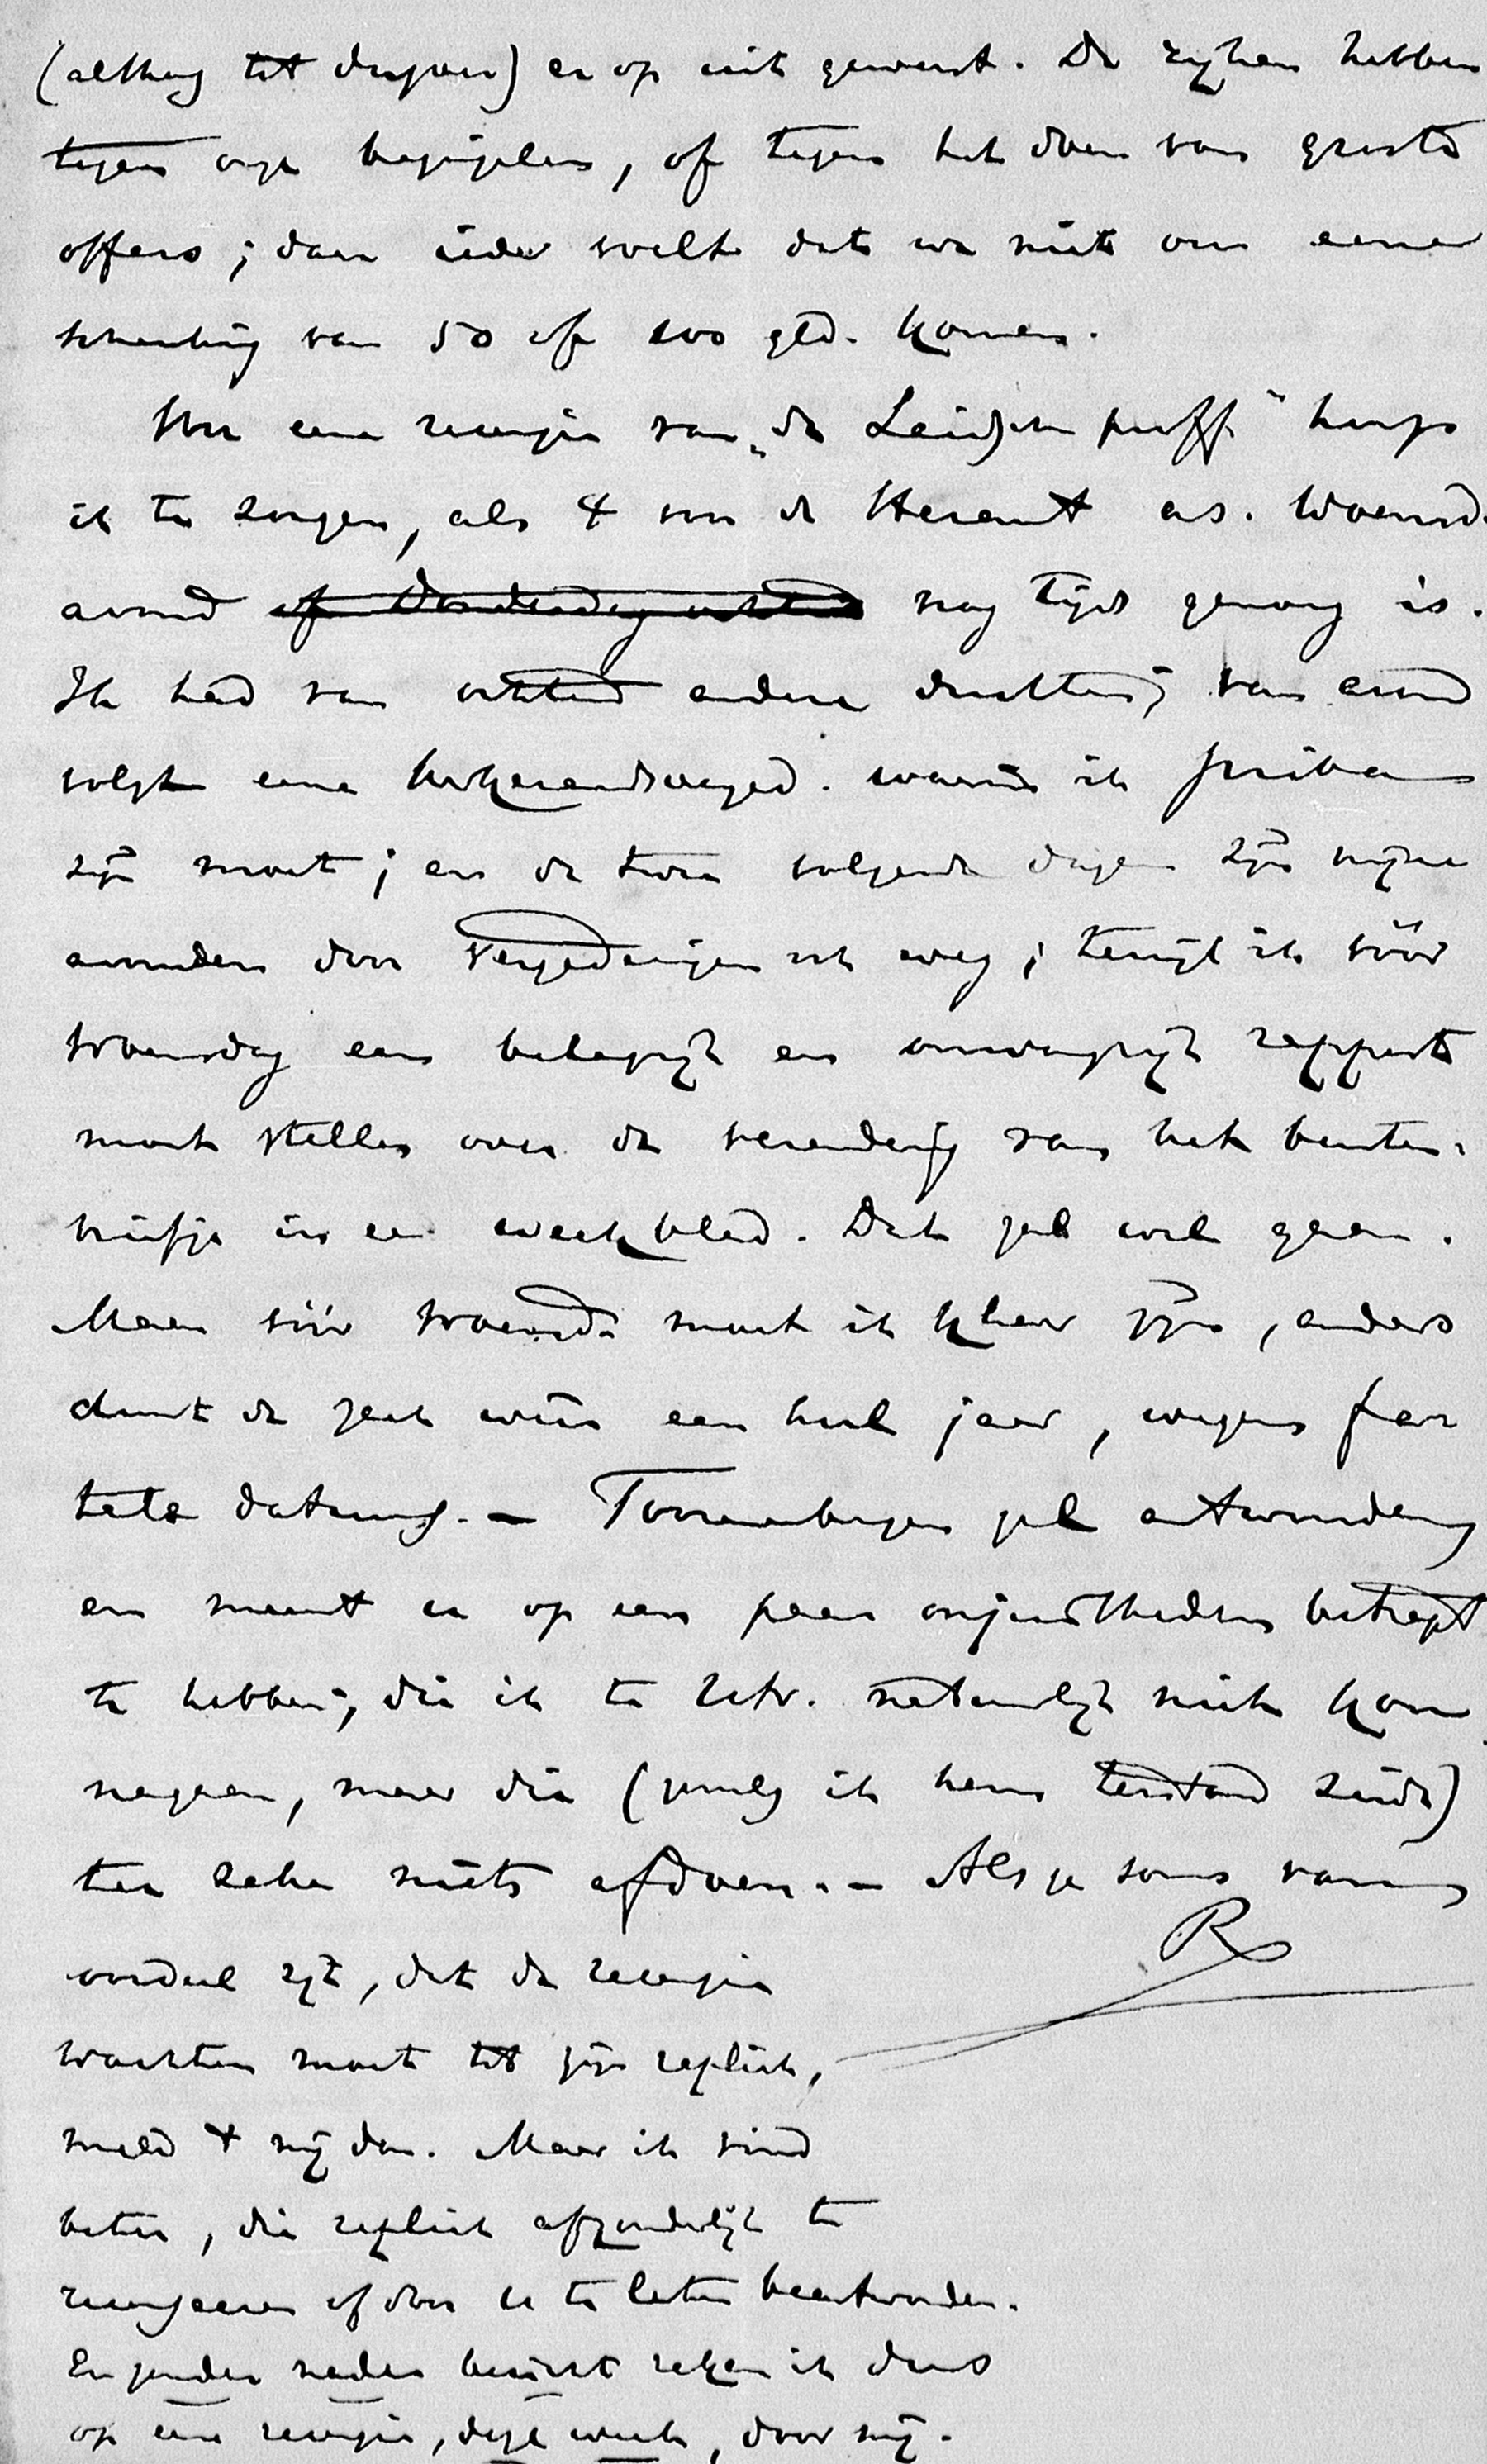 (althans tot dusver) er op uit geweest. De rijken hebben
tegen onze beginselen, of tegen het doen van groote
offers; daar ieder voelt dat we niet om eene
schenking van 50 of 100 gld. komen.
Voor eene recensie van „de Leidsche proff." hoop
ik te zorgen, als 't voor de Heraut a.s. Woensd.
avond of Donderdag ochtend nog tijds genoeg is.
Ik had van ochtend andere drukten; van avond
volgt eene kerkeraadsvergad. waarin ik praeses
zijn moet; en de twee volgende dagen zijn mijne
avonden door vergaderingen ook weg; terwijl ik vóór
Woensdag een belangrijk en omvangrijk rapport
moet stellen over de verandering van het buiten-
briefje in een weekblad. Dat zal wel gaan.
Maar vóór Woensd. moet ik klaar zijn, anders
duurt de zaak weer een half jaar, wegens
datums. — Toorenenbergen zal antwoorden
en meent er op een paar onjuistheden betrapt
te hebben; die ik te Utr. natuurlijk niet kon
nagaan, maar die (zooals ik hem terstond zeide)
ter zake niets afdoen. — Als je soms van
R
oordeel zijt, dat de recensie
wachten moet tot zijn repliek,
meld 't mij dan. Maar ik vind
beter, die repliek afzonderlijk te
recenseeren of door u te laten beantwoorden.
En zonder nader bericht reken ik dus
op eene recensie, deze week, door mij.